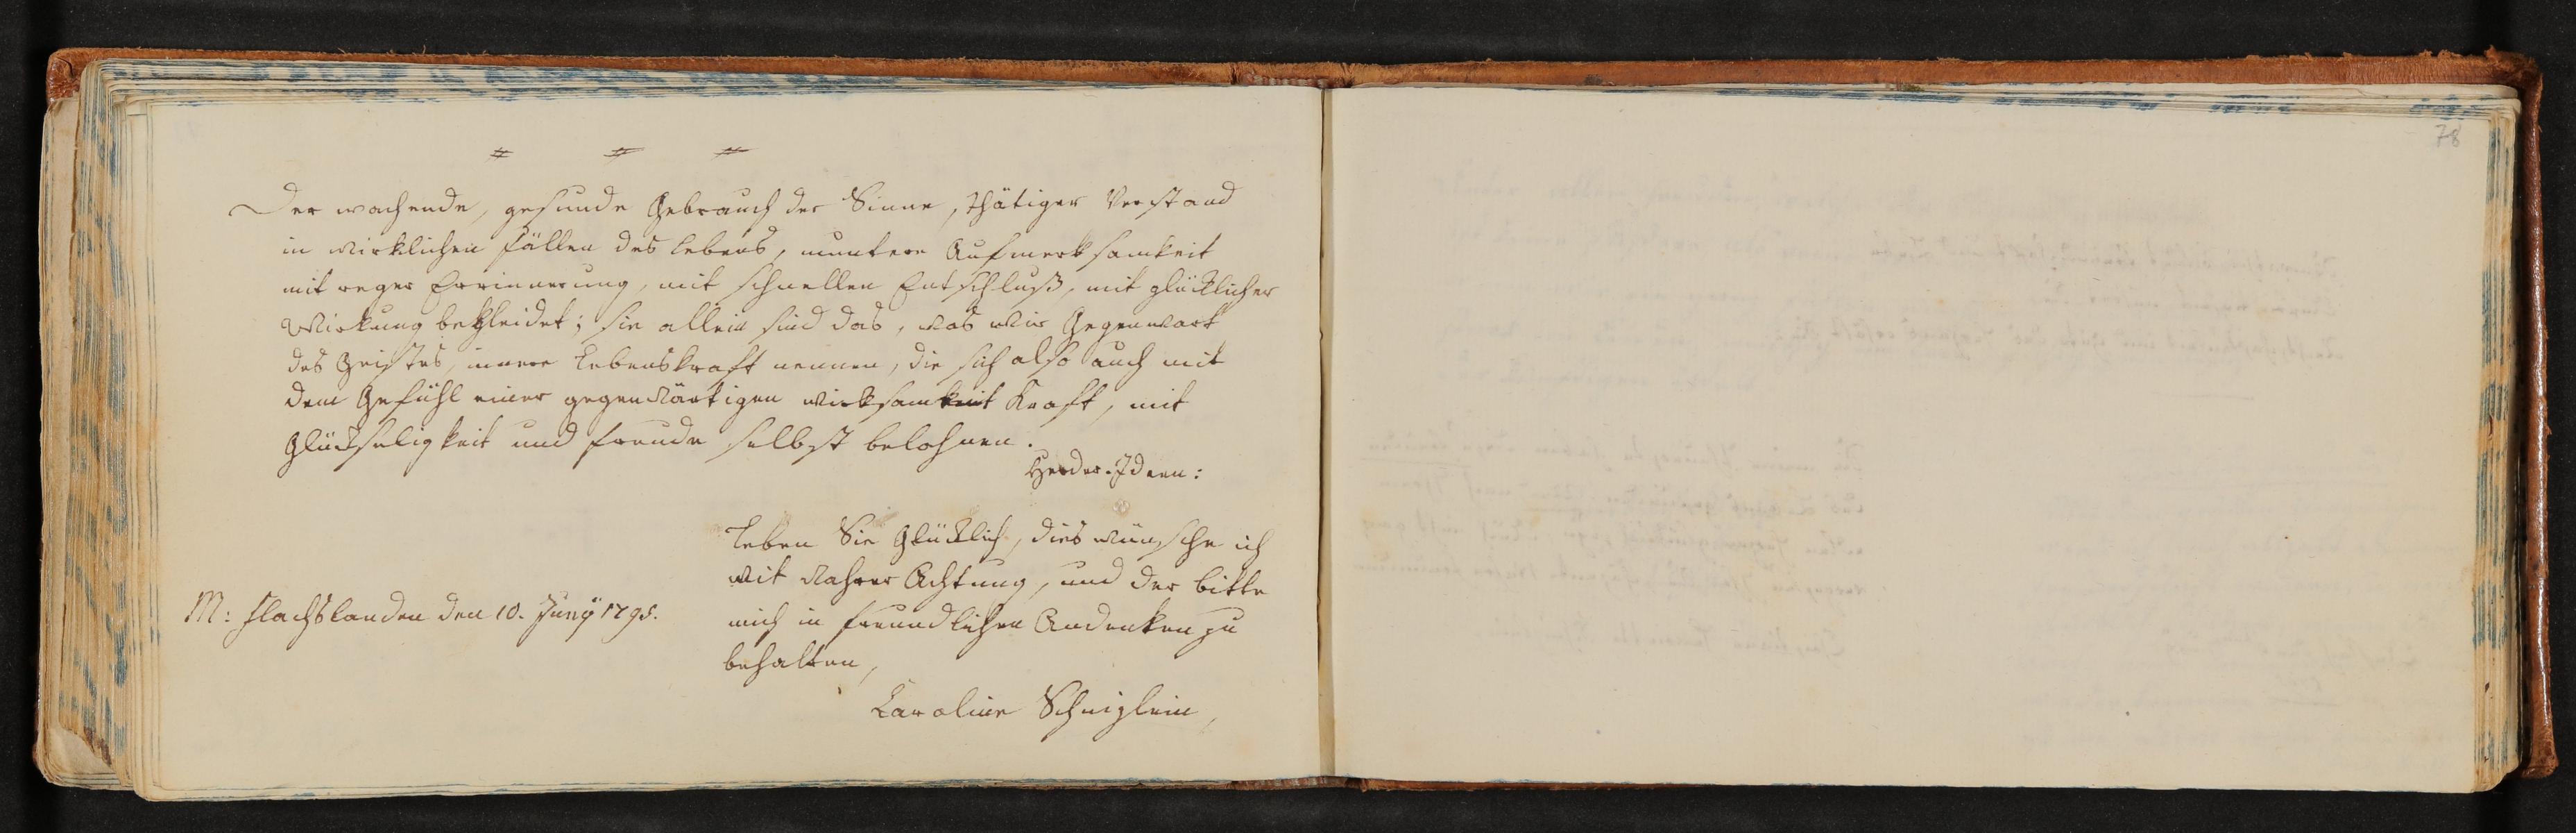 # # #
Der wachende, gesunde Gebrauch der Sinne, thätiger Verstand
in wirklichen Fällen des Lebens, muntere Aufmerksamkeit
mit reger Errinnerung, mit schnellen Entschluß, mit glücklicher
Wirkung begleidet; sie allein sind das, was wir Gegenwart
des Geistes, innere Lebenskraft nennen, die sich also auch mit
dem Gefühl einer gegenwärtigen wirksamkeit Kraft, mit
Glückseligkeit und Freude selbst belohnen.
Herder. Ideen:
Leben Sie Glücklich, dies wünsche ich
mit wahrer Achtung, und der bitte
mich in freundlichen Andenken zu
behalten,
M: Flachslanden den 10. Juny 1795.
Caroline Schnizlein,
78